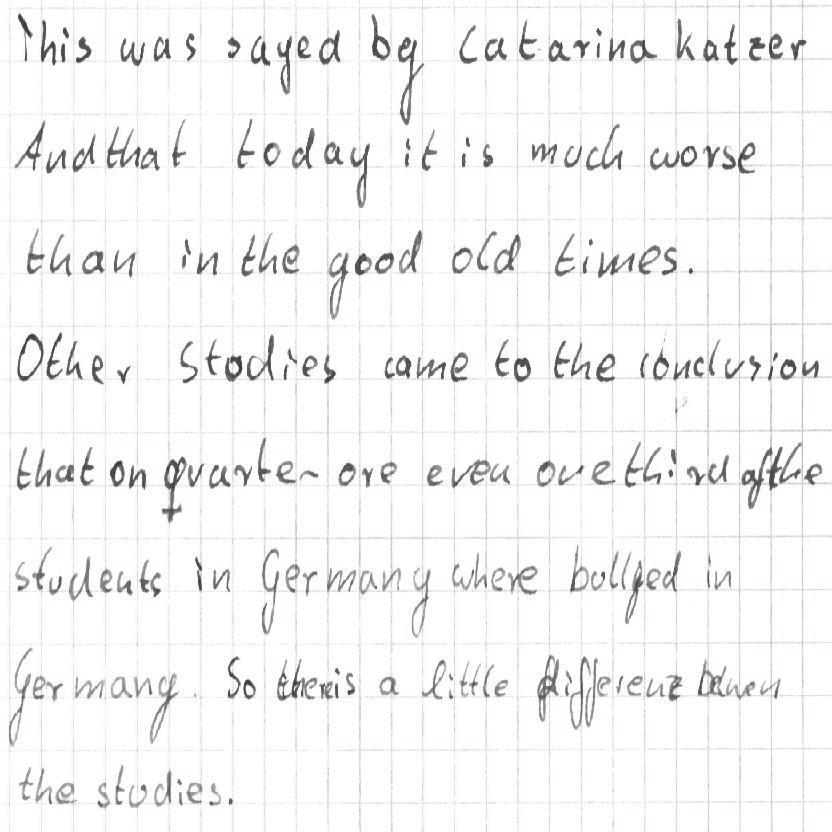 This was sayed by Catarina Katzer
And that today it is much worse
than in the good old times.
Other Studies came to the conclusion
that on quarter ore even one third of the
students in Germany where bullyed in
Germany. So there is a little differenz between
the studies.